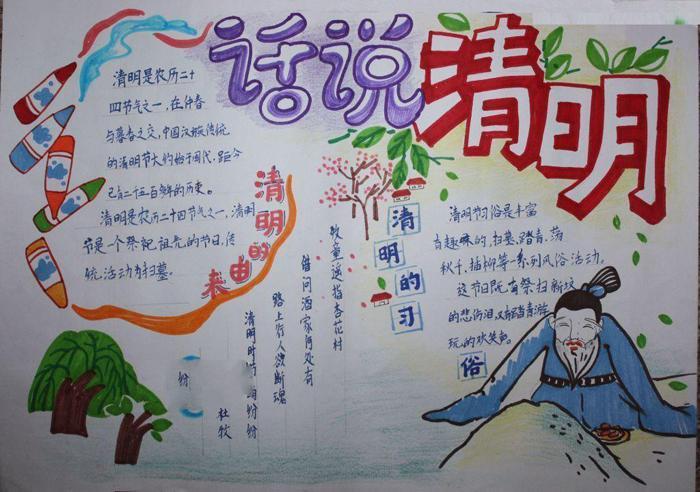 话说清明
清明是农历二十
四节气之一，在仲春
与暮春之交，中国汉族传统
的清明节大约始于周代，距今
的历史。
清明是农历二十四节气之一，清明
节是一个祭祀祖先的节日，传
统活动为扫墓。
清明的由来
杜牧
清明时节
路上行人欲断魂
借问酒家何处有
牧童遥指杏花村
清明的习俗
清明节习俗是丰富
有趣味的，扫墓，踏青，荡
秋千，插柳等一系列风俗活动。
这节日既有祭扫新坟
的悲伤泪，又有踏青游
玩的欢笑声。